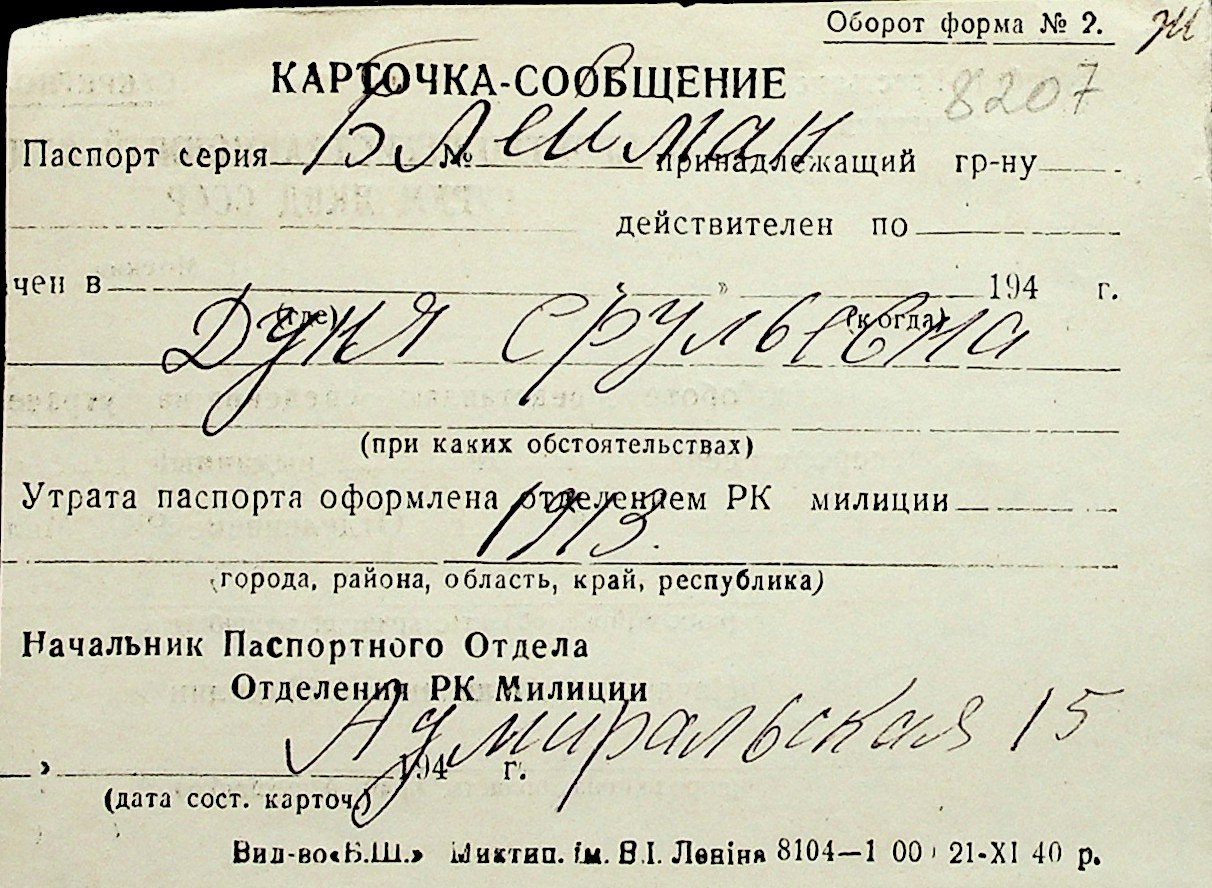 Оборот форма № 2. Ж
КАРТОЧКА-СООБЩЕНИЕ
8207
Блейман
Паспорт серия № принадлежащий гр-ну
действителен по
чен в „ » 194 г.
(где) (когда)
Дуня Срульевна
(при каких обстоятельствах)
Утрата паспорта оформлена отделением РК милиции
1913.
(города, района, область, край, республика)
Начальник Паспортного Отдела
Отделения РК Милиции
Адмиральская 15
» 194 г.
(дата сост. карточ.)
Вид-во «Б.Ш.» Миктип. ім. В.І. Леніна 8104—1 00 21-XI 40 р.